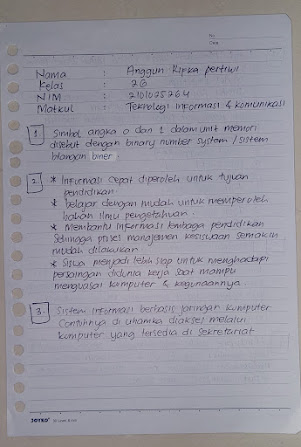 No.
Date
Nama : Anggun Rifska pertiwi
Kelas : 2G
NIM : 2101025264
Matkul : Teknologi Informasi & komunikasi
1. Simbol angka 0 dan 1 dalam unit memori
disebut dengan binary number system / sistem
bilangan biner
2. * Informasi Cepat diperoleh untuk tujuan
pendidikan.
* belajar dengan mudah untuk memperoleh
bahan ilmu pengetahuan.
* Membantu informasi lembaga pendidikan
Sehingga proses manajemen kesiswaan semakin
mudah dilakukan.
* Siswa menjadi lebih siap untuk menghadapi
persaingan didunia kerja saat mampu
menguasai komputer & kegunaannya
3. Sistem informasi berbasis jaringan komputer
Contohnya di uhamka diakses melalui
komputer yang tersedia di Sekretariat
JOYKO